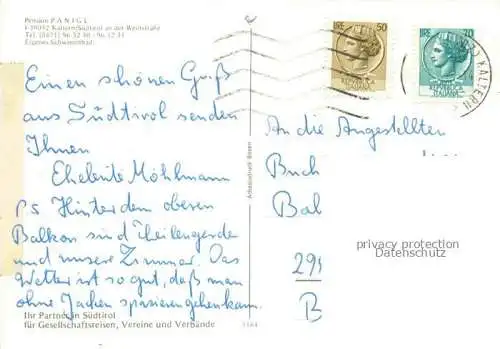 Pension PANIGL
I-39052 Kaltern/Südtirol an der Weinstraße
Tel. (0471) 96 32 30 - 96 32 31
Eigenes Schwimmbad
LIRE 50
REPUBBLICA ITALIANA
LIRE 70
REPUBBLICA ITALIANA
KALTERN
Einen schönen Gruß
aus Südtirol senden
Ihnen
Eheleute Möhlmann
PS Hinter dem oberen
Balkon sind
und unsere Zimmer. Das
Wetter ist so gut, daß man
ohne Jacken spazierengehen kann.
Ihr Partner in Südtirol
für Gesellschaftsreisen, Vereine und Verbände
An die Angestellten
Buch
Bal
291
B
privacy protection
Datenschutz